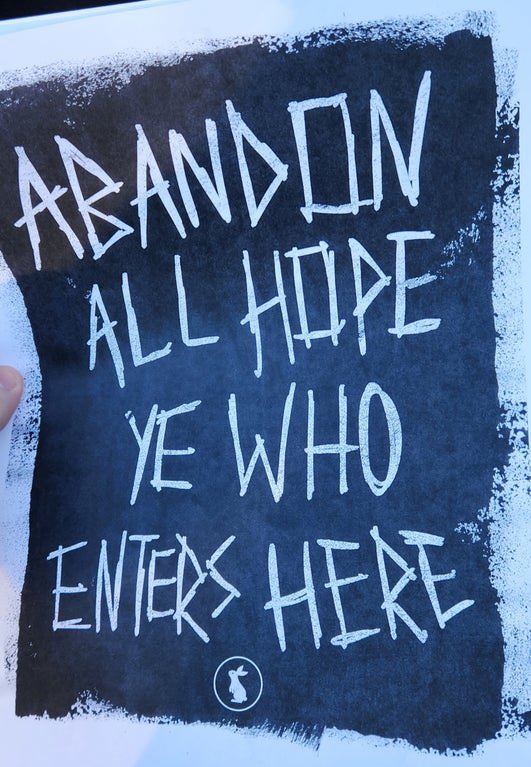 ABANDON
ALL HOPE
YE WHO
ENTERS HERE